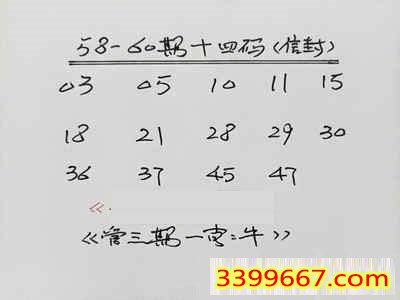 58-60期十四码(信封)
03 05 10 11 15
18 21 28 29 30
36 37 45 47
《.
《管三期一肖:牛》
3399667.com